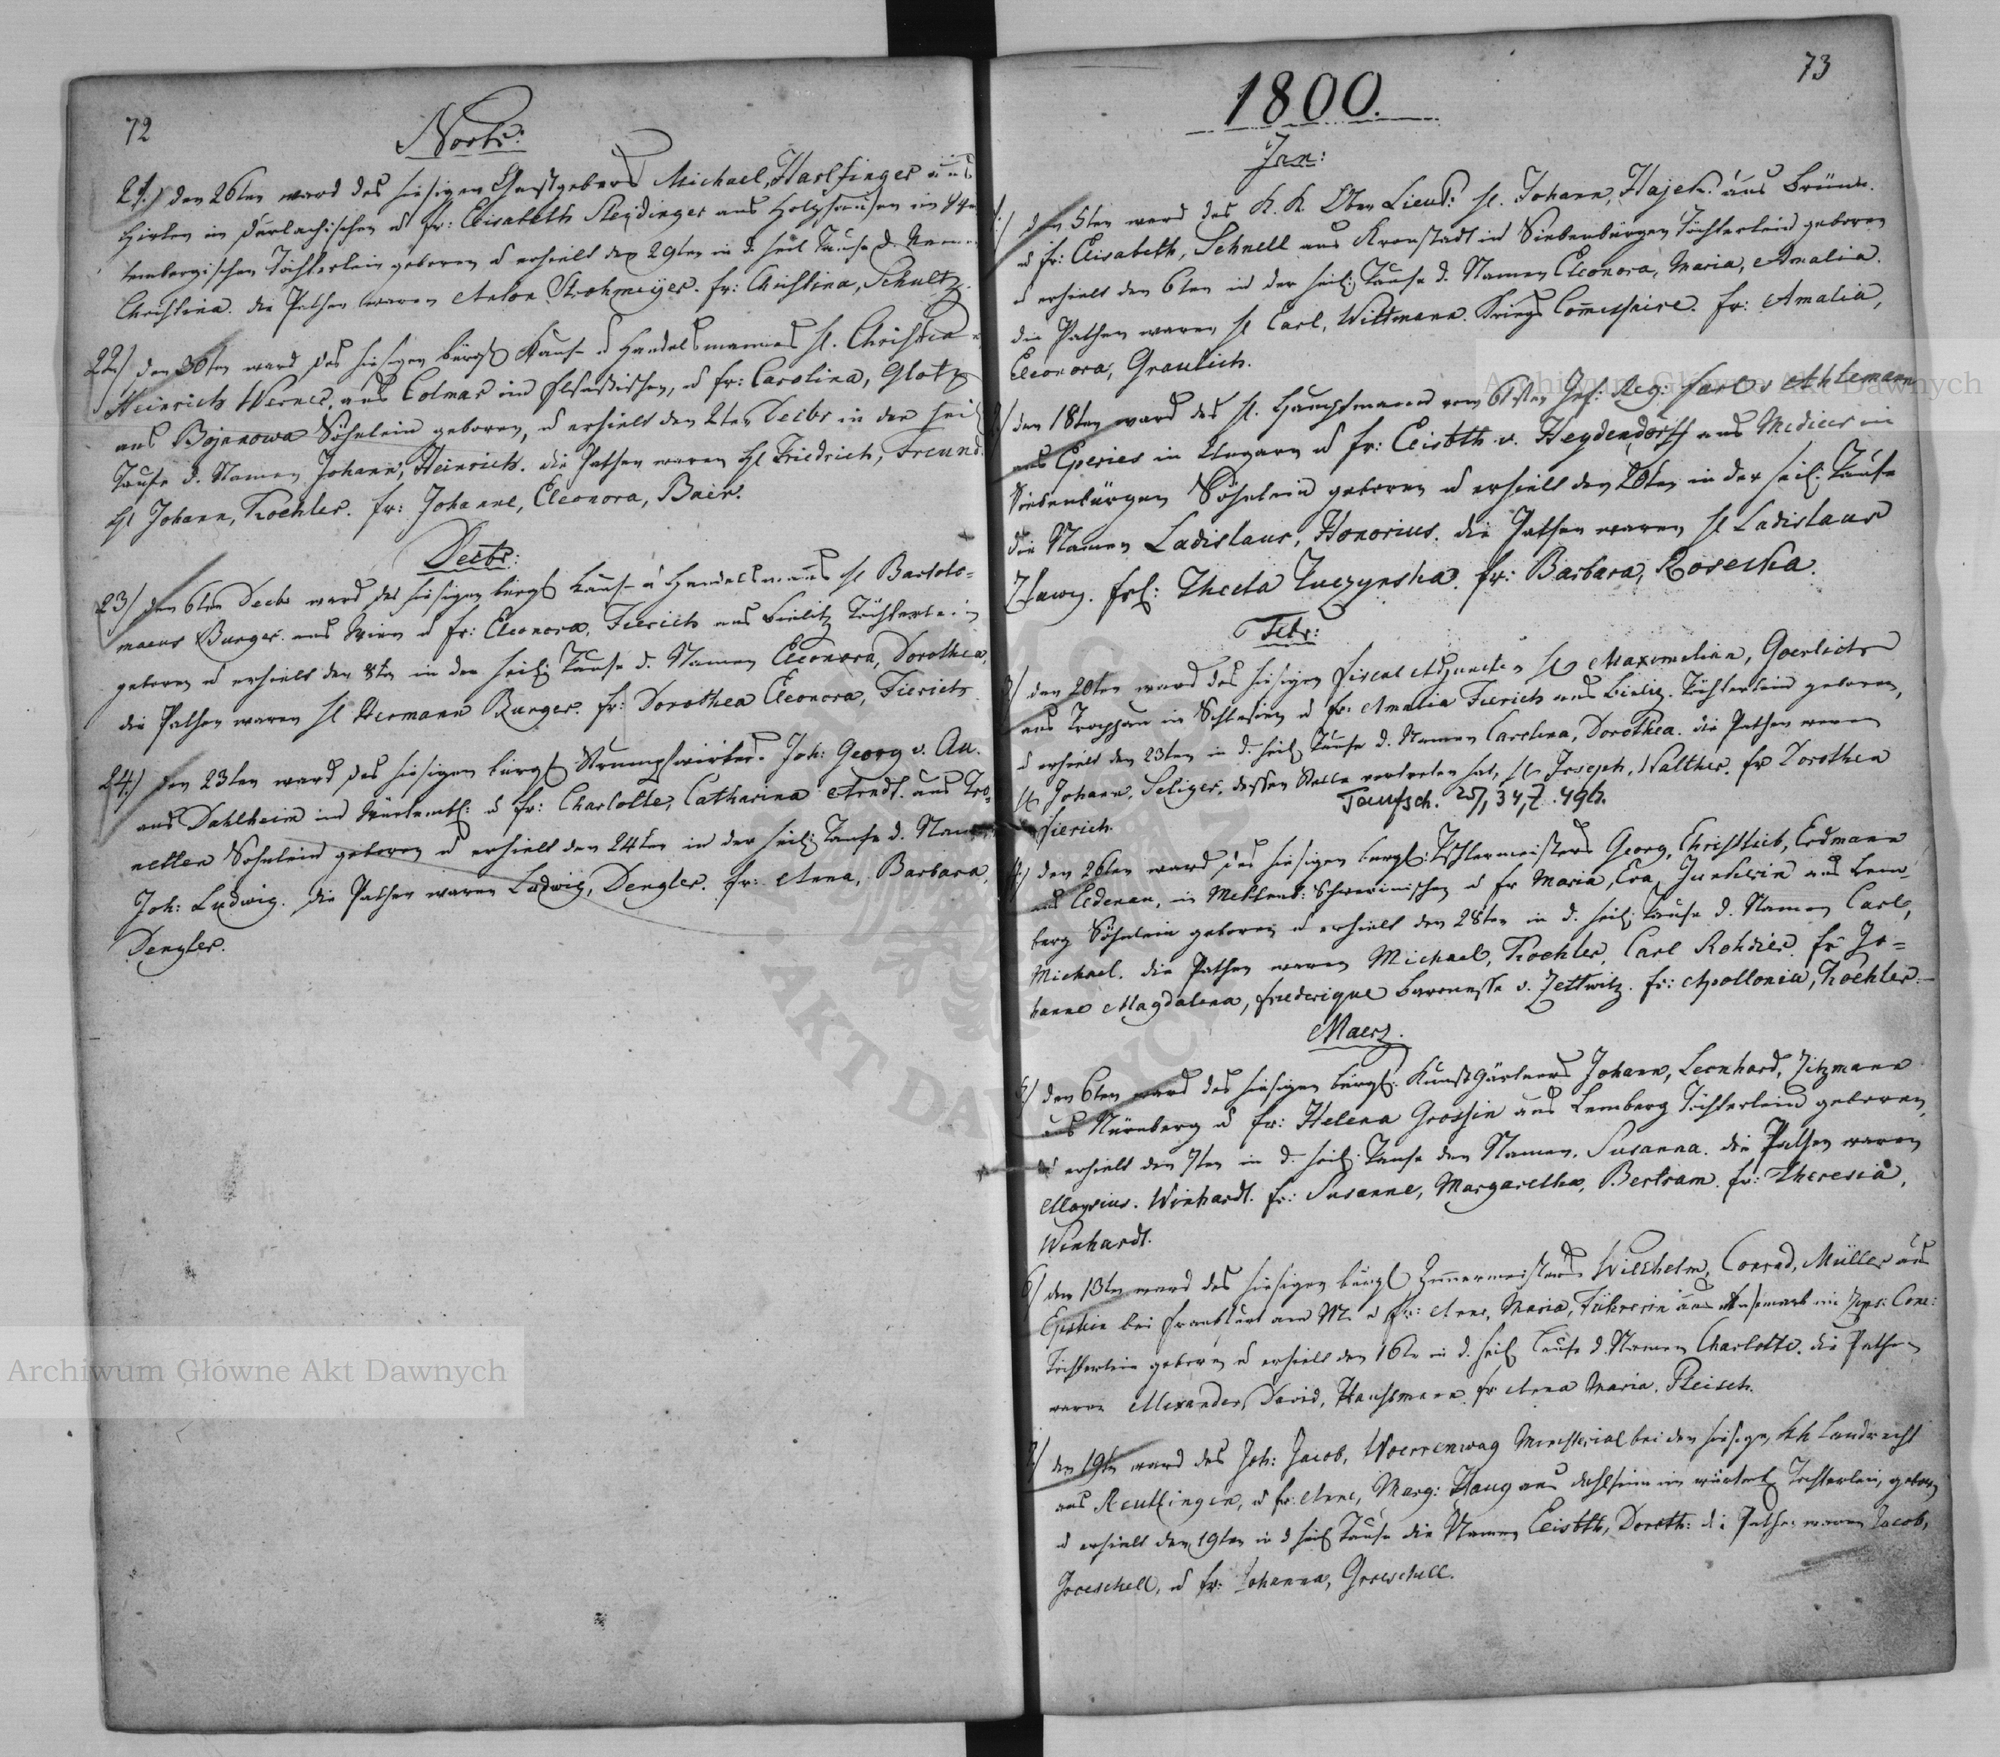 72
Novbr:
21.) den 26ten ward des hiesigen Gastgebers Michael, Harlfinger aus
Hirten im Durlachischen u fr: Elisabeth Steidinger aus Holzhausen im
tembergischen Töchterlein geboren u erhielt den 29ten in d. heil Taufe d. Namen
Christina. die Pathen waren Anton Strohmeijer. fr: Christina, Schultz.
22.) den 30ten ward des hiesigen bürgl Kauf- u Handelsmannes H. Christian
Heinrich Werner, aus Colmar im Elsassischen, u fr: Carolina, Glotz
aus Bojanowa Söhnlein geboren, u erhielt den 2ten Decbr in der heil
Taufe d. Namen Johann, Heinrich. die Pathen waren H Friedrich, Freund.
H Johann, Koehler. fr: Johanne, Eleonora, Baier.
Decbr:
23) den 6ten Decbr ward des hiesigen bürgl Kauf- u Handelsmanns H Bartolo-
maeus Burger. aus Wien u fr: Eleonora, Fierich aus Bielitz Töchterlein
geboren u erhielt den 8ten in der heil: Taufe d. Namen Eleonora, Dorothea,
die Pathen waren H Hermann Burger. fr: Dorothea Eleonora, Fierich.
24.) den 23ten ward des hiesigen bürgl Strumpfwirker. Joh: Georg v. Au.
aus Dahlheim im Würtembl: u fr: Charlotte, Catharina Arndt. aus
Sohnlein geboren u erhielt den 24ten in der heil: Taufe d. Namen
Joh: Ludwig. die Pathen waren Ludwig, Dengler. fr: Anna, Barbara,
Dengler.
73
1800.
Jan:
1.) den 5ten ward des K. K. Ober Lieut: H. Johann, Hajek. aus Brünn.
u fr: Elisabeth, Schnell aus Kronstadt in Siebenbürgen Töchterlein geboren
u erhielt den 6ten in der heil: Taufe d. Namen Eleonora, Maria, Amalia.
die Pathen waren H Carl, Wittmann. Kriegs Commissaire. fr: Amalia,
Eleonora, Graulich.
2) den 18ten ward des H. Hauptmann vom 61sten Inf: Reg: Carl v Ahlemann
aus Eperies in Ungarn u fr: Elisbth v. Heydendorff aus Medies in
Siebenbürgen Söhnlein geboren u erhielt den 20ten in der heil. Taufe
die Namen Ladislaus, Honorius. die Pathen waren H Ladislaus
frl: Thecla Luczynska. fr: Barbara, Rosecka.
Febr:
3) den 20ten ward des hiesigen Fiscal Adjuncten H Maximilian, Goerlich
aus Troppau in Schlesien u fr: Amalia Fierich aus Bieliz. Töchterlein geboren,
u erhielt den 23ten in d. heil: Taufe d. Namen Carolina, Dorothea. die Pathen waren
H Johann, Seliger, dessen Stelle vertreten hat, H Joseph, Walther. fr Dorothea
Fierich. Taufsch. 25/3 4/7. 496.
4.) den 26ten ward des hiesigen bürgl: Tischlermeisters Georg, Christlieb, Erdmann
aus Eldenau, in Meklenb: Schwerinischen u fr Maria, Eva, Junkerin aus Lem-
berg Söhnlein geboren u erhielt den 28ten in d. heil: Taufe d. Namen Carl,
Michael. die Pathen waren Michael, Koehler, Carl Rohrer fr Jo=
hanne Magdalena, friederique baronesse v. Zettwitz. fr: Apollonia, Koehler.
Maerz.
5) den 6ten ward des hiesigen bürgl: Kunstgärtners Johann, Leonhard, Zitzmann
aus Nürnberg u fr: Helena Grossin aus Lemberg Töchterlein geboren,
u erhielt den 7ten in d. heil: Taufe den Namen. Susanna. die Pathen waren
Aloysius. Winhardt. fr: Susanne, Margaretha, Bertram. fr: Theresia,
Winhardt.
6) den 13ten ward des hiesigen bürgl Zimmermeisters Wilhelm, Conrad, Müller aus
bei Frankfurt am M. u fr: Anna, Maria, Führerin aus Käsmark im Zips: Com:
Töchterlein geboren u erhielt den 16ten in d. heil: Taufe d. Namen Charlotte. die Pathen
waren Alexander, David, Hauptmann. fr Anna Maria. Pleisch.
7.) den 19ten ward des Joh: Jacob, Woerrenwag Ministerial bei den hiesigen kk Landrecht
aus Reutlingen, u fr: Anna, Marg: Haug aus dahlheim im würtemb Töchterlein, geboren
u erhielt den 19ten in d heil Taufe die Namen Elisbth, Doroth: die Pathen waren Jacob,
Groeschell, u fr: Johanna, Groeschell.
Archiwum Główne Akt Dawnych
Archiwum Główne Akt Dawnych